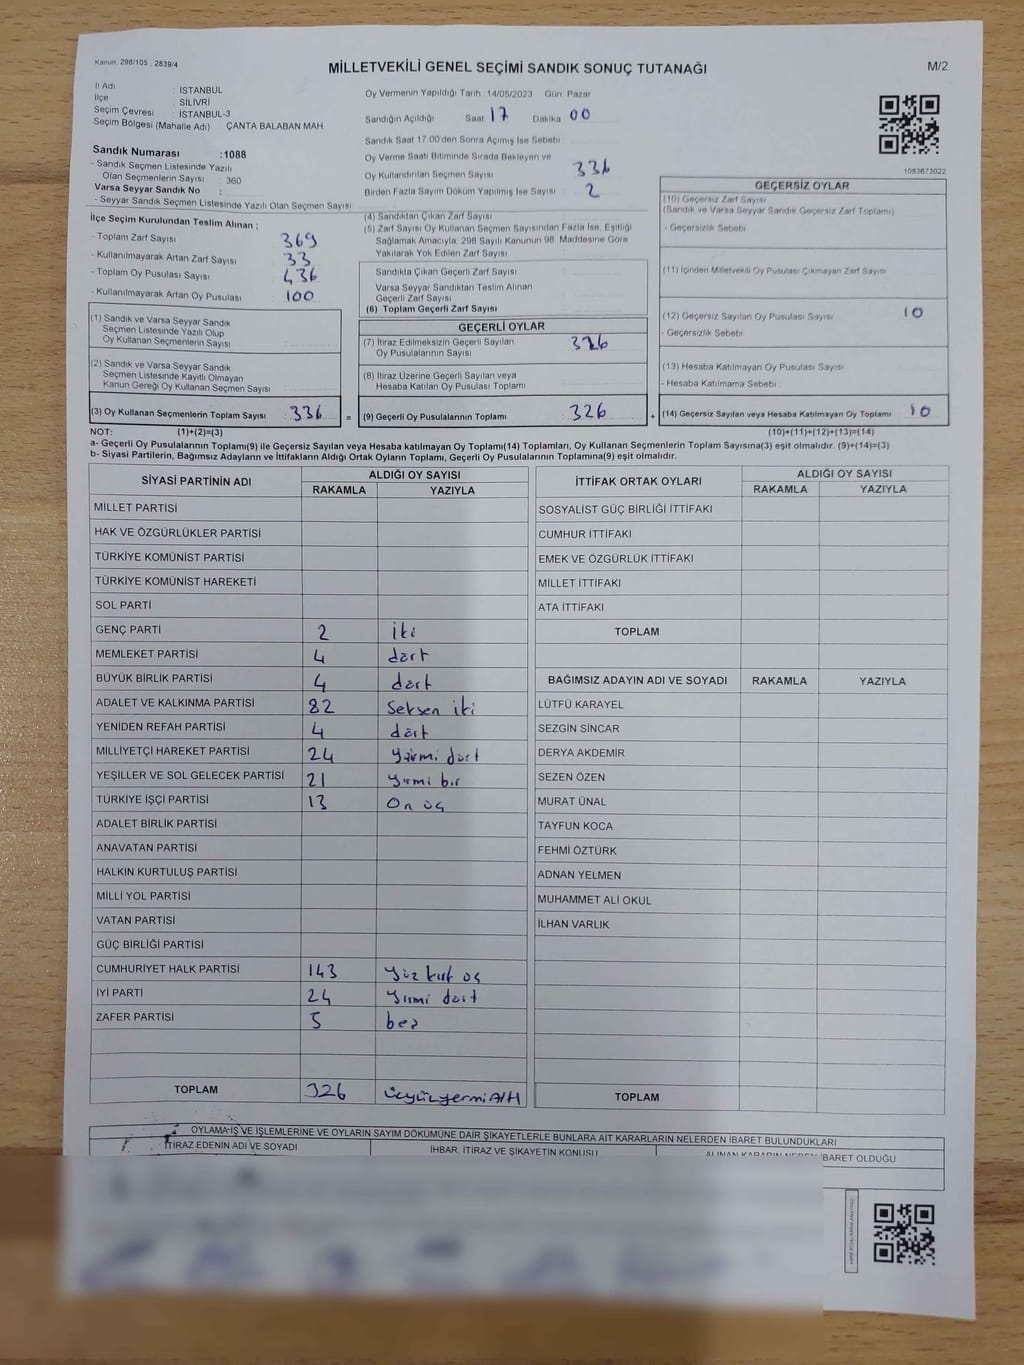 Kanun: 298/105 , 2839/4
MİLLETVEKİLİ GENEL SEÇİMİ SANDIK SONUÇ TUTANAĞI
M/2
İl Adı : İSTANBUL
İlçe : SİLİVRİ
Seçim Çevresi : İSTANBUL-3
Seçim Bölgesi (Mahalle Adı) : ÇANTA BALABAN MAH.
Oy Vermenin Yapıldığı Tarih :14/05/2023 Gün: Pazar
Sandığın Açıldığı Saat 17 Dakika 00
Sandık Saat 17:00'den Sonra Açılmış İse Sebebi
Oy Verme Saati Bitiminde Sırada Bekleyen ve
Oy Kullandırılan Seçmen Sayısı 336
Birden Fazla Sayım Döküm Yapılmış İse Sayısı 2
1083673022
Sandık Numarası :1088
- Sandık Seçmen Listesinde Yazılı
Olan Seçmenlerin Sayısı : 360
Varsa Seyyar Sandık No :
- Seyyar Sandık Seçmen Listesinde Yazılı Olan Seçmen Sayısı
İlçe Seçim Kurulundan Teslim Alınan ;
- Toplam Zarf Sayısı 369
- Kullanılmayarak Artan Zarf Sayısı 33
- Toplam Oy Pusulası Sayısı 436
- Kullanılmayarak Artan Oy Pusulası 100
(1) Sandık ve Varsa Seyyar Sandık
Seçmen Listesinde Yazılı Olup
Oy Kullanan Seçmenlerin Sayısı
(2) Sandık ve Varsa Seyyar Sandık
Seçmen Listesinde Kayıtlı Olmayan
Kanun Gereği Oy Kullanan Seçmen Sayısı
(3) Oy Kullanan Seçmenlerin Toplam Sayısı 336 =
(4) Sandıktan Çıkan Zarf Sayısı
(5) Zarf Sayısı Oy Kullanan Seçmen Sayısından Fazla İse, Eşitliği
Sağlamak Amacıyla, 298 Sayılı Kanunun 98. Maddesine Göre
Yakılarak Yok Edilen Zarf Sayısı
Sandıkta Çıkan Geçerli Zarf Sayısı
Varsa Seyyar Sandıktan Teslim Alınan
Geçerli Zarf Sayısı
(6) Toplam Geçerli Zarf Sayısı
GEÇERLİ OYLAR
(7) İtiraz Edilmeksizin Geçerli Sayılan
Oy Pusulalarının Sayısı 326
(8) İtiraz Üzerine Geçerli Sayılan veya
Hesaba Katılan Oy Pusulası Toplamı
(9) Geçerli Oy Pusulalarının Toplamı 326 +
GEÇERSİZ OYLAR
(10) Geçersiz Zarf Sayısı
(Sandık ve Varsa Seyyar Sandık Geçersiz Zarf Toplamı)
- Geçersizlik Sebebi
(11) İçinden Milletvekili Oy Pusulası Çıkmayan Zarf Sayısı
(12) Geçersiz Sayılan Oy Pusulası Sayısı 10
- Geçersizlik Sebebi
(13) Hesaba Katılmayan Oy Pusulası Sayısı
- Hesaba Katılmama Sebebi
(14) Geçersiz Sayılan veya Hesaba Katılmayan Oy Toplamı 10
NOT: (1)+(2)=(3) (10)+(11)+(12)+(13)=(14)
a- Geçerli Oy Pusulalarının Toplamı(9) ile Geçersiz Sayılan veya Hesaba katılmayan Oy Toplamı(14) Toplamları, Oy Kullanan Seçmenlerin Toplam Sayısına(3) eşit olmalıdır. (9)+(14)=(3)
b- Siyasi Partilerin, Bağımsız Adayların ve İttifakların Aldığı Ortak Oyların Toplamı, Geçerli Oy Pusulalarının Toplamına(9) eşit olmalıdır.
SİYASİ PARTİNİN ADI ALDIĞI OY SAYISI
RAKAMLA YAZIYLA
MİLLET PARTİSİ
HAK VE ÖZGÜRLÜKLER PARTİSİ
TÜRKİYE KOMÜNİST PARTİSİ
TÜRKİYE KOMÜNİST HAREKETİ
SOL PARTİ
GENÇ PARTİ 2 iki
MEMLEKET PARTİSİ 4 dört
BÜYÜK BİRLİK PARTİSİ 4 dört
ADALET VE KALKINMA PARTİSİ 82 Seksen iki
YENİDEN REFAH PARTİSİ 4 dört
MİLLİYETÇİ HAREKET PARTİSİ 24 yirmi dört
YEŞİLLER VE SOL GELECEK PARTİSİ 21 yirmi bir
TÜRKİYE İŞÇİ PARTİSİ 13 On üç
ADALET BİRLİK PARTİSİ
ANAVATAN PARTİSİ
HALKIN KURTULUŞ PARTİSİ
MİLLİ YOL PARTİSİ
VATAN PARTİSİ
GÜÇ BİRLİĞİ PARTİSİ
CUMHURİYET HALK PARTİSİ 143 yüz kırk üç
İYİ PARTİ 24 yirmi dört
ZAFER PARTİSİ 5 beş
TOPLAM 326 üçyüzyermi Altı
İTTİFAK ORTAK OYLARI ALDIĞI OY SAYISI
RAKAMLA YAZIYLA
SOSYALİST GÜÇ BİRLİĞİ İTTİFAKI
CUMHUR İTTİFAKI
EMEK VE ÖZGÜRLÜK İTTİFAKI
MİLLET İTTİFAKI
ATA İTTİFAKI
TOPLAM
BAĞIMSIZ ADAYIN ADI VE SOYADI RAKAMLA YAZIYLA
LÜTFÜ KARAYEL
SEZGİN SİNCAR
DERYA AKDEMİR
SEZEN ÖZEN
MURAT ÜNAL
TAYFUN KOCA
FEHMİ ÖZTÜRK
ADNAN YELMEN
MUHAMMET ALİ OKUL
İLHAN VARLIK
TOPLAM
OYLAMA İŞ VE İŞLEMLERİNE VE OYLARIN SAYIM DÖKÜMÜNE DAİR ŞİKAYETLERLE BUNLARA AİT KARARLARIN NELERDEN İBARET BULUNDUKLARI
İTİRAZ EDENİN ADI VE SOYADI İHBAR, İTİRAZ VE ŞİKAYETİN KONUSU ALINAN KARARIN NEDEN İBARET OLDUĞU